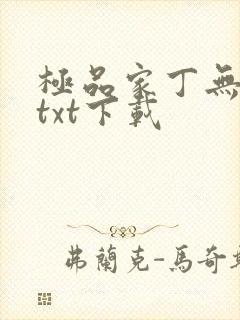 極品家丁無
txt下載
弗蘭克-馬奇